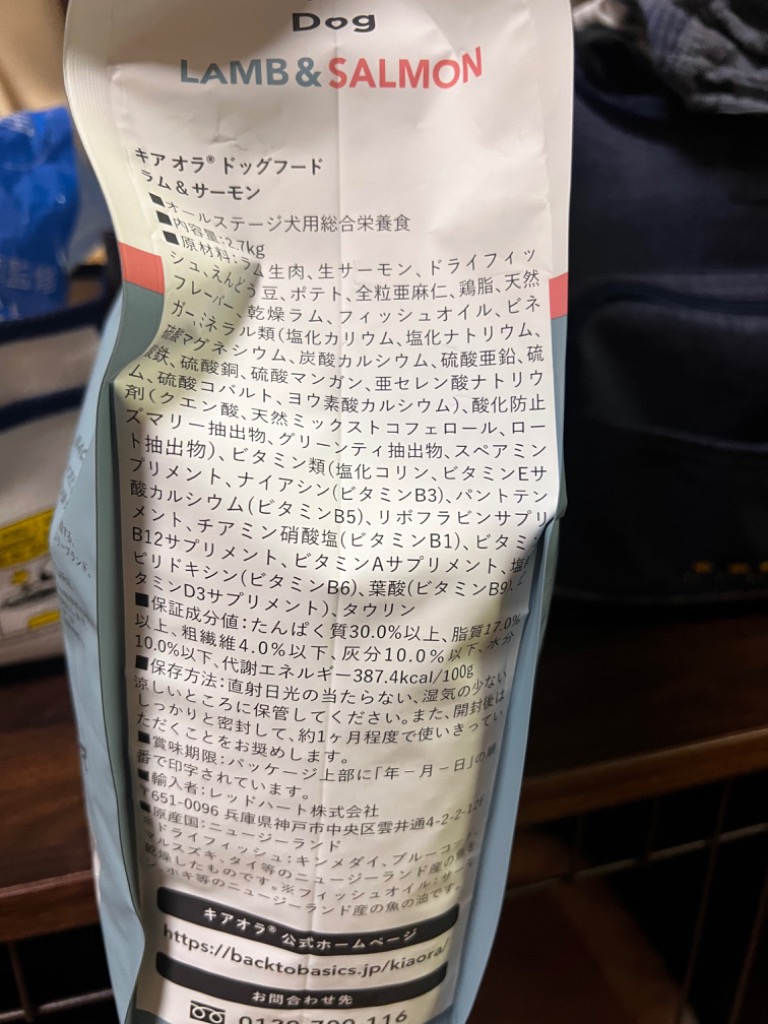 Dog
LAMB & SALMON
キア オラ® ドッグフード
ラム & サーモン
■オールステージ犬用総合栄養食
■内容量:2.7kg
■原材料:ラム生肉、生サーモン、ドライフィッ
シュ、えんどう豆、ポテト、全粒亜麻仁、鶏脂、天然
フレーバー、乾燥ラム、フィッシュオイル、ビネ
ガー、ミネラル類(塩化カリウム、塩化ナトリウム、
硫酸マグネシウム、炭酸カルシウム、硫酸亜鉛、硫
酸鉄、硫酸銅、硫酸マンガン、亜セレン酸ナトリウ
ム、硫酸コバルト、ヨウ素酸カルシウム)、酸化防止
剤(クエン酸、天然ミックストコフェロール、ロー
ズマリー抽出物、グリーンティ抽出物、スペアミン
ト抽出物)、ビタミン類(塩化コリン、ビタミンEサ
プリメント、ナイアシン(ビタミンB3)、パントテン
酸カルシウム(ビタミンB5)、リボフラビンサプリ
メント、チアミン硝酸塩(ビタミンB1)、ビタミン
B12サプリメント、ビタミンAサプリメント、塩酸
ピリドキシン(ビタミンB6)、葉酸(ビタミンB9)、ビ
タミンD3サプリメント)、タウリン
■保証成分値:たんぱく質30.0%以上、脂質17.0%
以上、粗繊維4.0%以下、灰分10.0%以下、水分
10.0%以下、代謝エネルギー387.4kcal/100g
■保存方法:直射日光の当たらない、湿気の少ない
涼しいところに保管してください。また、開封後は
しっかりと密封して、約1ヶ月程度で使いきってい
ただくことをお奨めします。
■賞味期限:パッケージ上部に「年－月－日」の順
番で印字されています。
■輸入者:レッドハート株式会社
〒651-0096 兵庫県神戸市中央区雲井通4-2-2-12F
■原産国:ニュージーランド
※ドライフィッシュ:キンメダイ、ブルーコッド、
マルスズキ、タイ等のニュージーランド産の魚を
乾燥したものです。※フィッシュオイル:サーモ
ン、ホキ等のニュージーランド産の魚の油です。
キアオラ® 公式ホームページ
https://backtobasics.jp/kiaora/
お問合わせ先